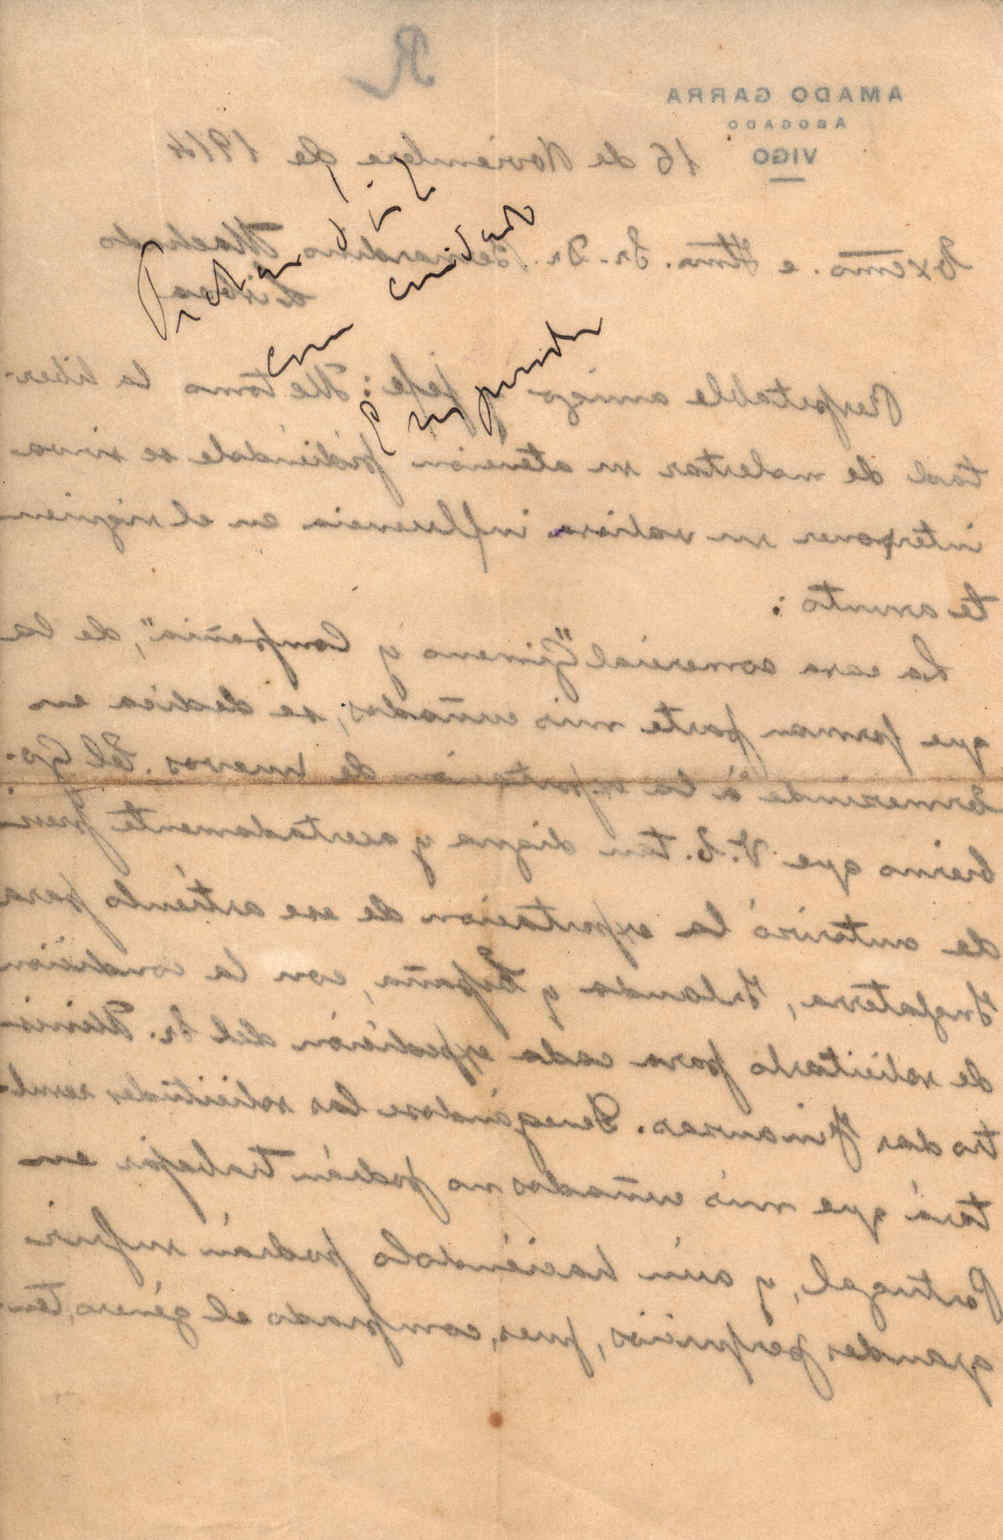 R
AMADO GARRA
ABOGADO
VIGO
16 de Noviembre de 1914
Excmo. e Ilmo. Sr. Dr. Bernardino Machado
Lisboa
Respetable amigo y jefe: Me tomo la liber-
tad de molestar su atención pidiéndole se sirva
interponer su valiosa influencia en el siguien-
te asunto:
La casa comercial "Gimeno y Compañía", de la
que forman parte mis cuñados, se dedica en
á la exportación de huevos. El Go-
bierno que V.E. tan digna y acertadamente presi-
de autorizó la exportación de ese artículo para
Inglaterra, Irlanda y España, con la condición
de solicitarlo para cada expedición del Sr. Minis-
tro das Finanzas. Denegándose las solicitudes resul-
tará que mis cuñados no podrán trabajar en
Portugal, y aún haciéndolo podrán sufrir
grandes perjuicios, pues, comprado el género, ten-
com cuidado